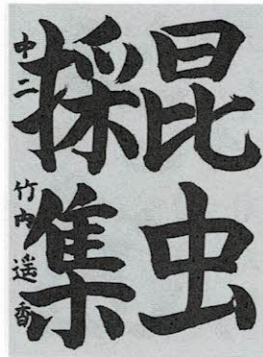 昆虫
採集
中二 竹内遥香